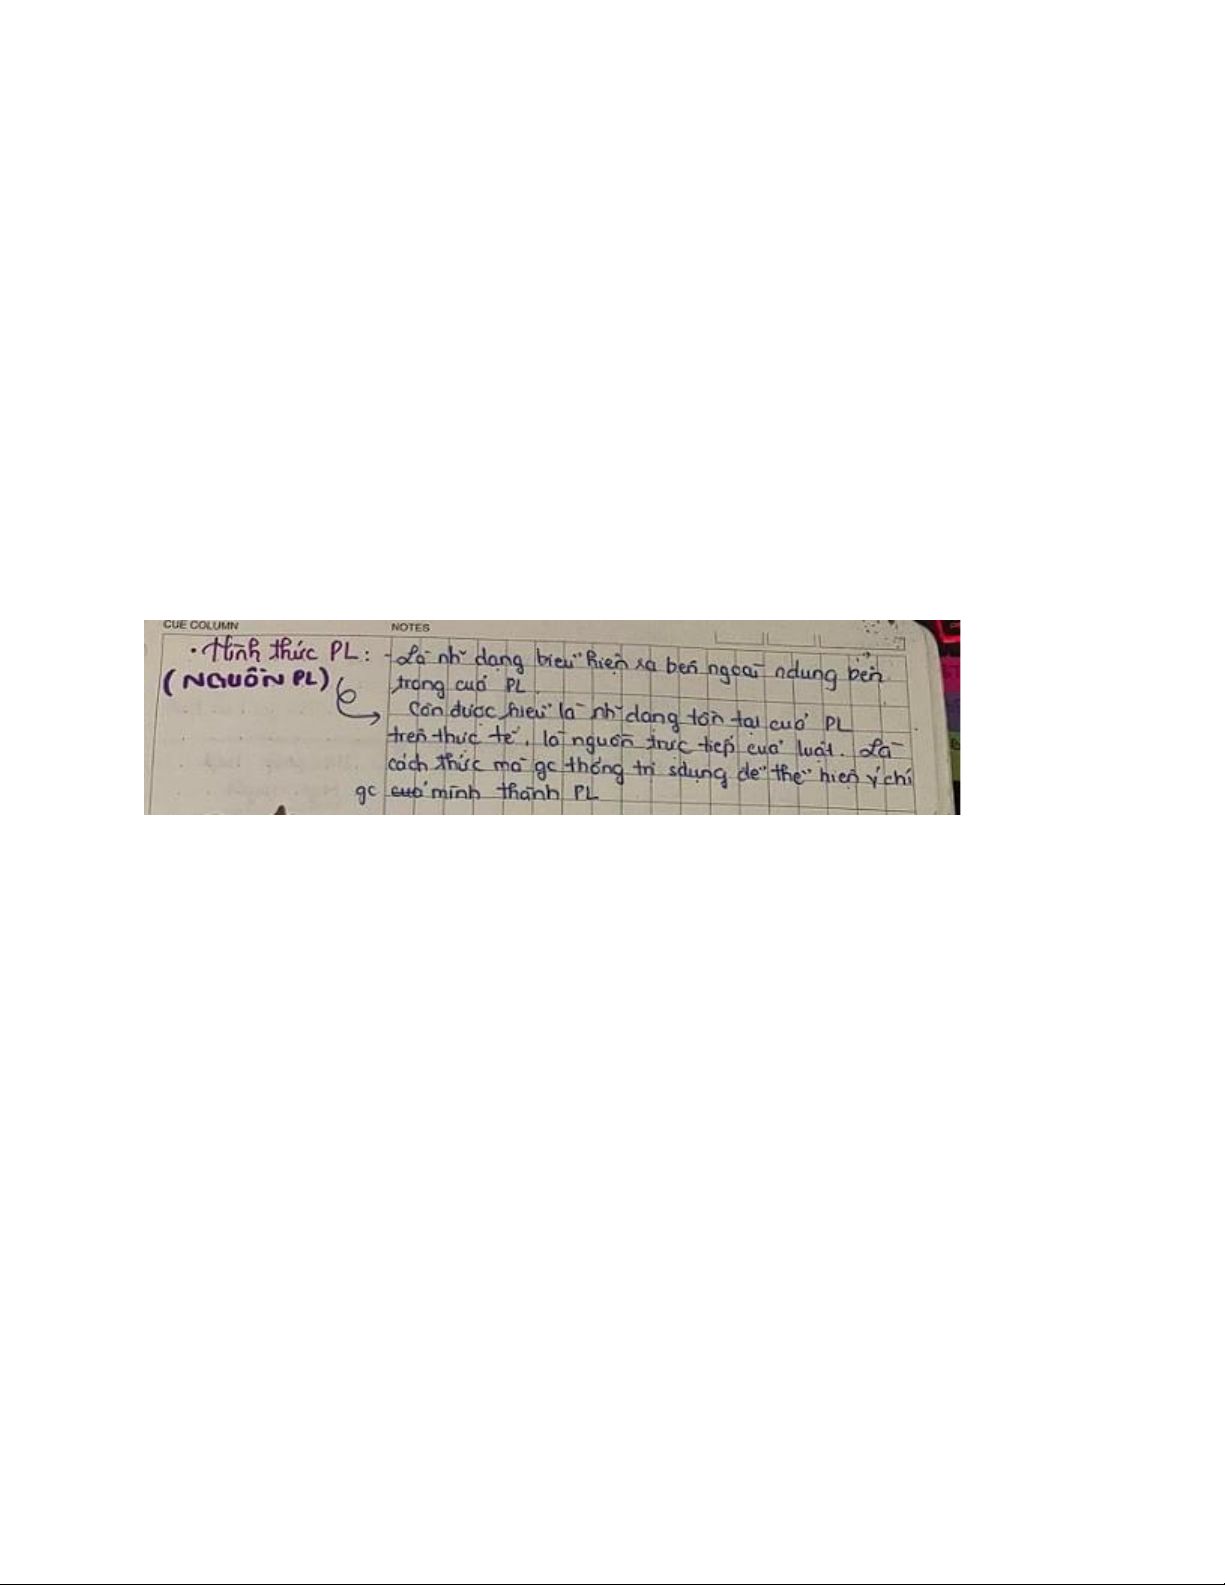 CUE COLUMN
NOTES
• Hình thức PL:
(NGUỒN PL)
- Là nh~ dạng biểu hiện ra bên ngoài ndung bên
trong của PL.
Còn được hiểu là nh~ dạng tồn tại của PL
trên thực tế, là nguồn trực tiếp của luật. Là
cách thức mà gc thống trị sdụng để thể hiện ý chí
gc của mình thành PL